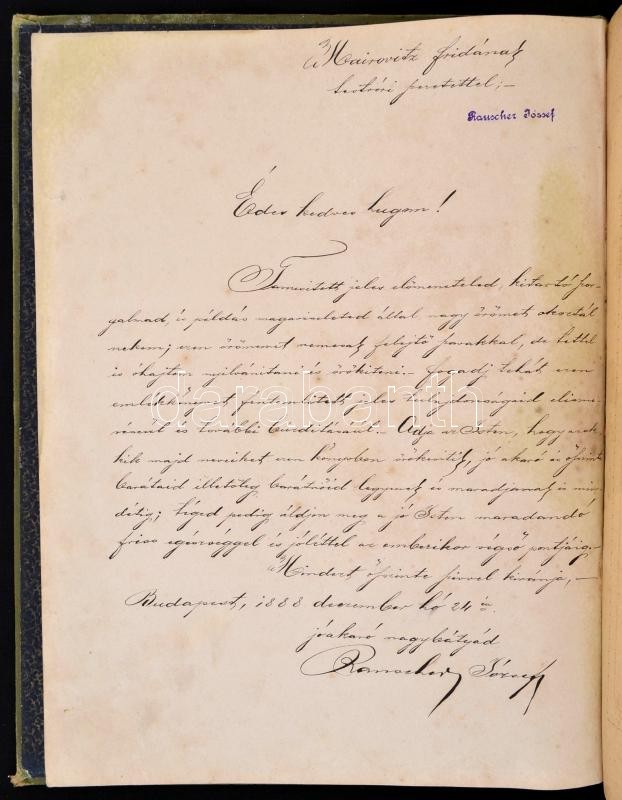 Mairovitz Fridának
testvéri szeretettel;—
Rauscher József
Édes kedves hugom!
Tanusított jeles előmeneteled, kitartó szor-
galmad, és példás magaviseleted által nagy örömet okoztál
nekem; ezen örömemet nemcsak felejtő szavakkal, de tettel
is óhajtom nyilvánitani és örökiteni.— Fogadj tehát ezen
emlékkönyvet fentemlitett jeles tulajdonságaid elisme-
réseül és további buzditásául.— Adja az Isten, hogy azok
kik majd nevüket ezen könyvben örökitik, jó akaró és őszinte
barátaid illetőleg barátnőid legyenek és maradjanak is min-
détig; téged pedig áldjon meg a jó Isten maradandó
friss egészséggel és jóléttel az emberikor végső pontjáig.
Mindezt őszinte szivvel kivánja,—
Budapest, 1888 deczember hó 24 én
jóakaró nagybátyád
Rauscher József
darabanth